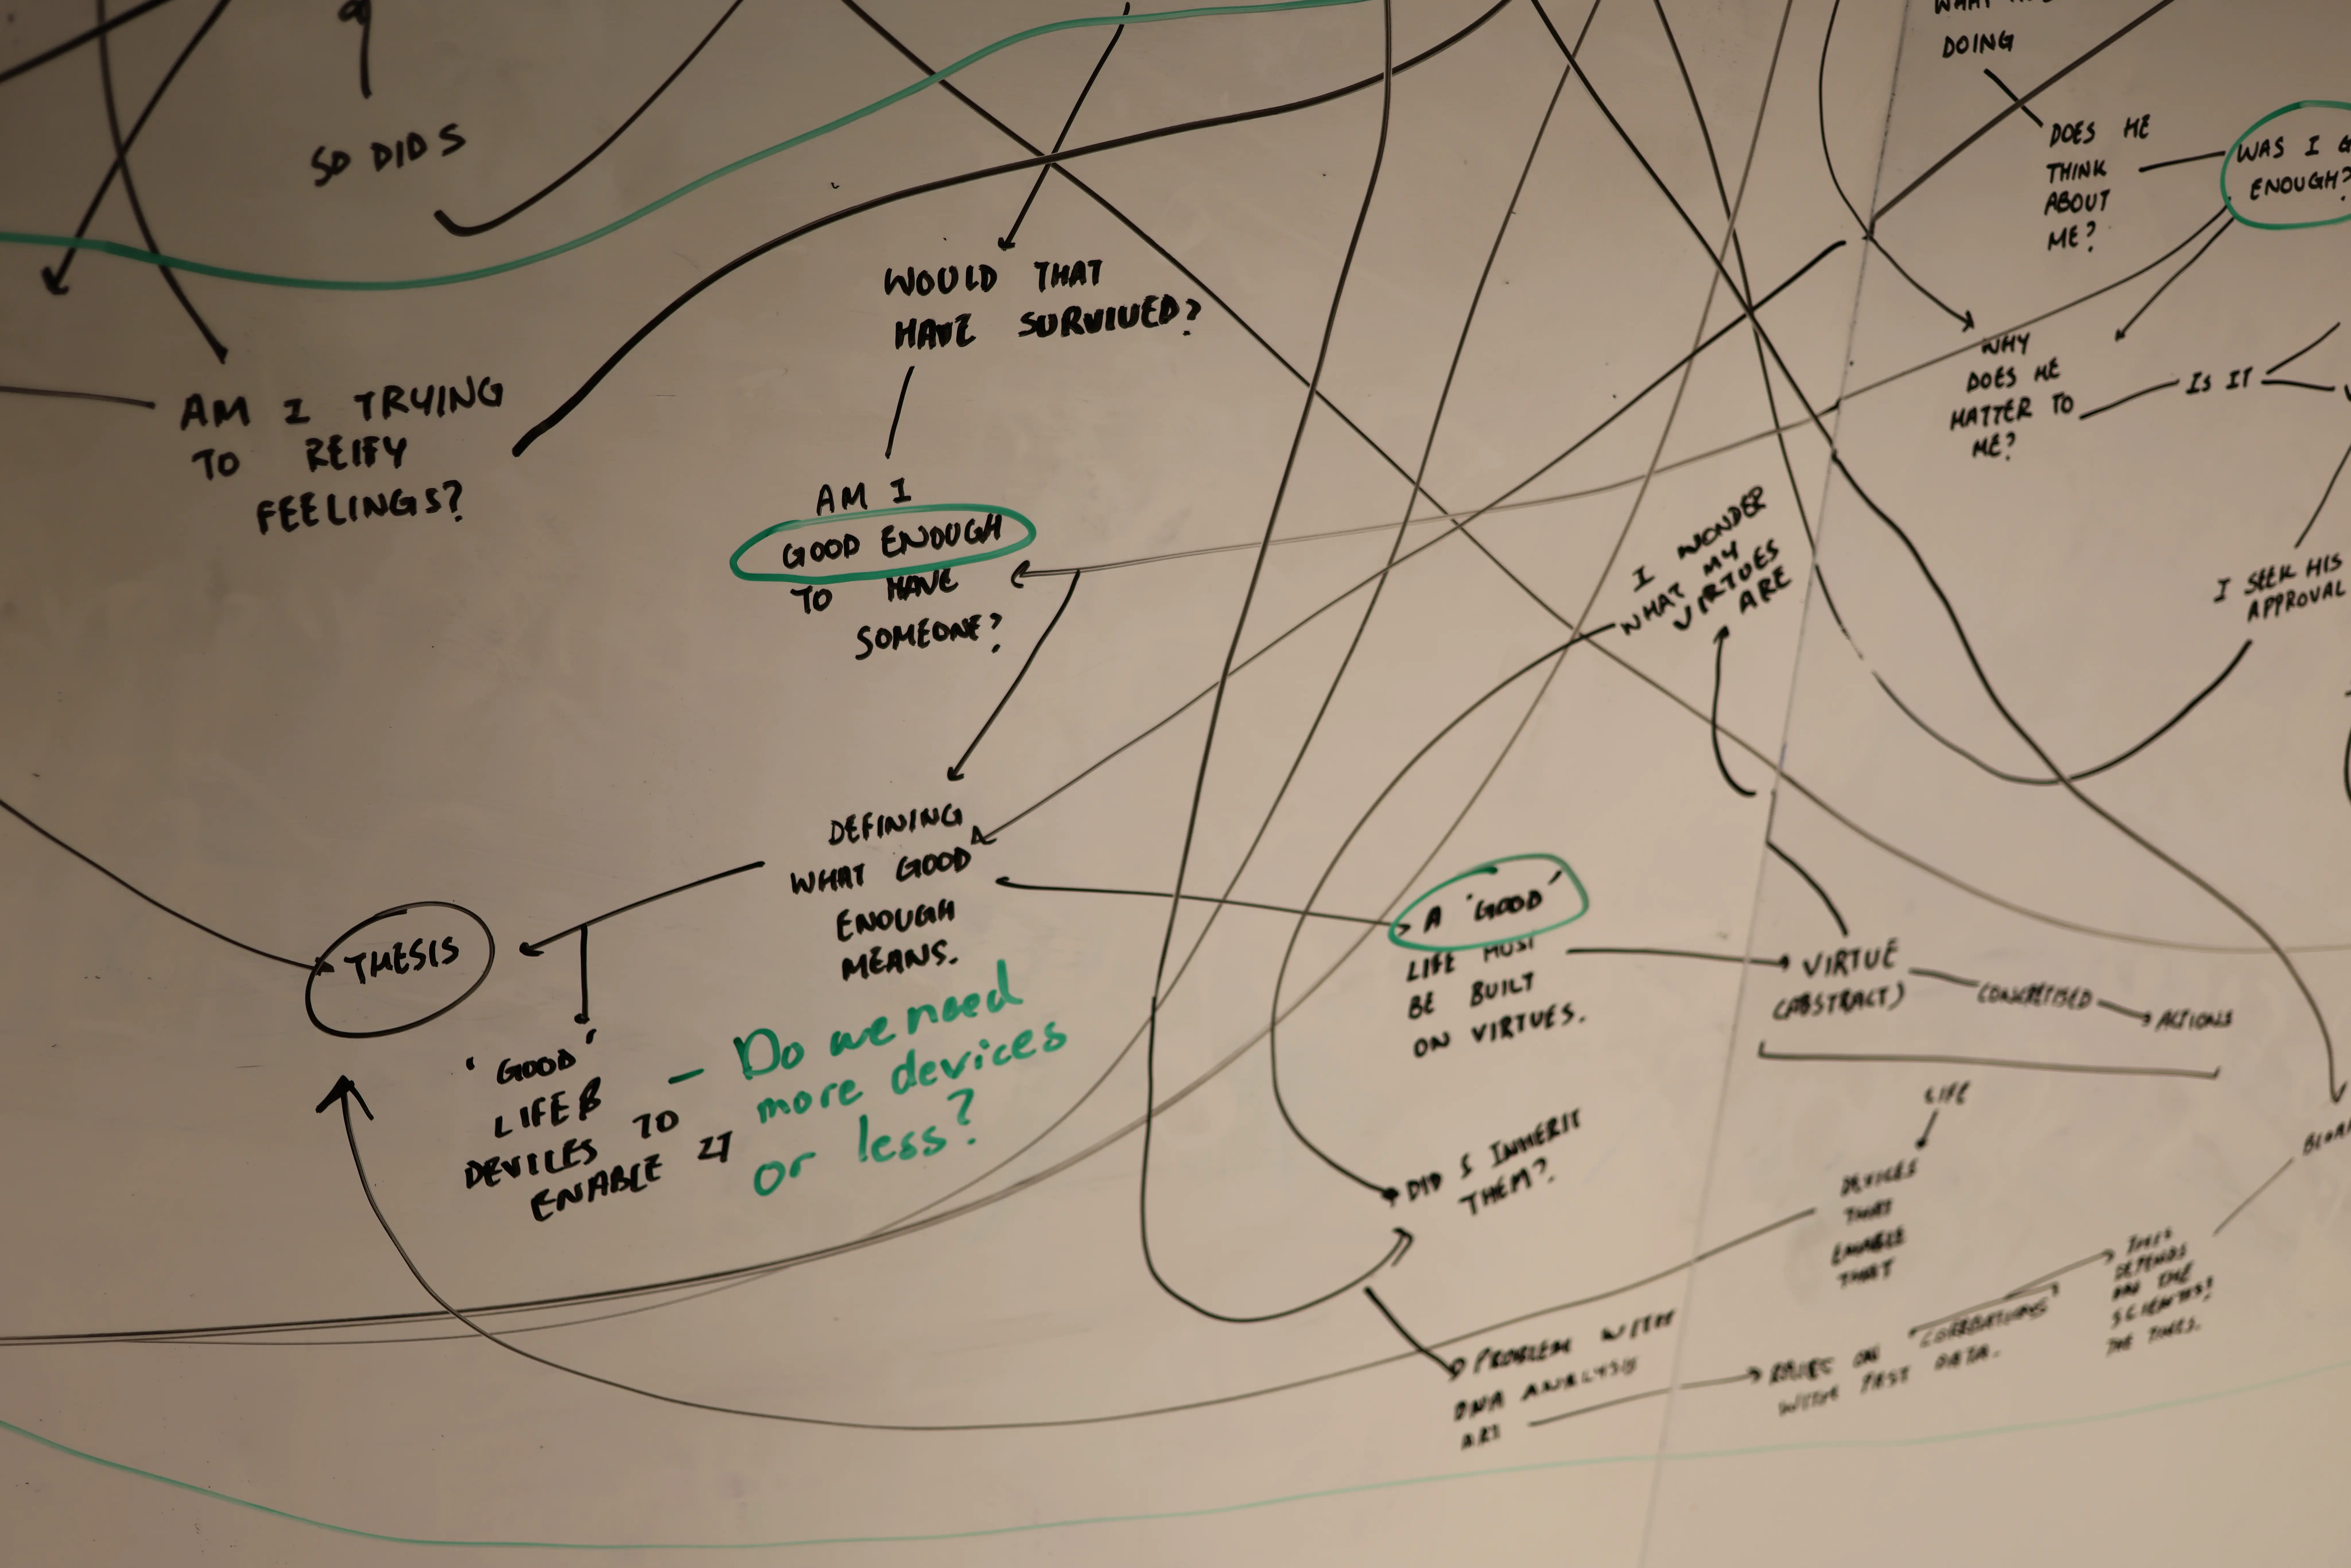 DOING
SO DID S
DOES HE
THINK
ABOUT
ME?
WAS I G
ENOUGH?
WOULD THAT
HAVE SURVIVED?
WHY
DOES HE
MATTER TO
ME?
IS IT
AM I TRYING
TO REIFY
FEELINGS?
AM I
GOOD ENOUGH
TO HAVE
SOMEONE?
I WONDER
WHAT MY
VIRTUES
ARE
I SEEK HIS
APPROVAL
DEFINING
WHAT GOOD
ENOUGH
MEANS.
THESIS
A 'GOOD'
LIFE MUST
BE BUILT
ON VIRTUES.
VIRTUE
(ABSTRACT)
CONCRETISED
ACTIONS
'GOOD'
LIFE &
DEVICES TO
ENABLE IT
- Do we need
more devices
or less?
LIFE
DEVICES
THAT
ENABLE
THAT
DID I INHERIT
THEM?
PROBLEM WITH
DNA ANALYSIS
ART
RELIES ON CORRELATIONS
WITH PAST DATA.
THIS
DEPENDS
ON THE
SCIENTIST/
THE TIMES.